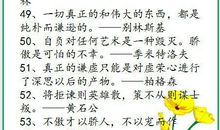 林
49、一切真正的和伟大的东西，都是
纯朴而谦逊的。——别林斯基
50、自负对任何艺术是一种毁灭。骄
傲是可怕的不幸。——季米特洛夫
51、真正的谦虚只能是对虚荣心进行
了深思以后的产物。——柏格森
52、将拒谏则英雄散，策不从则谋士
叛。——黄石公
53、不傲才以骄人，不以宠而作